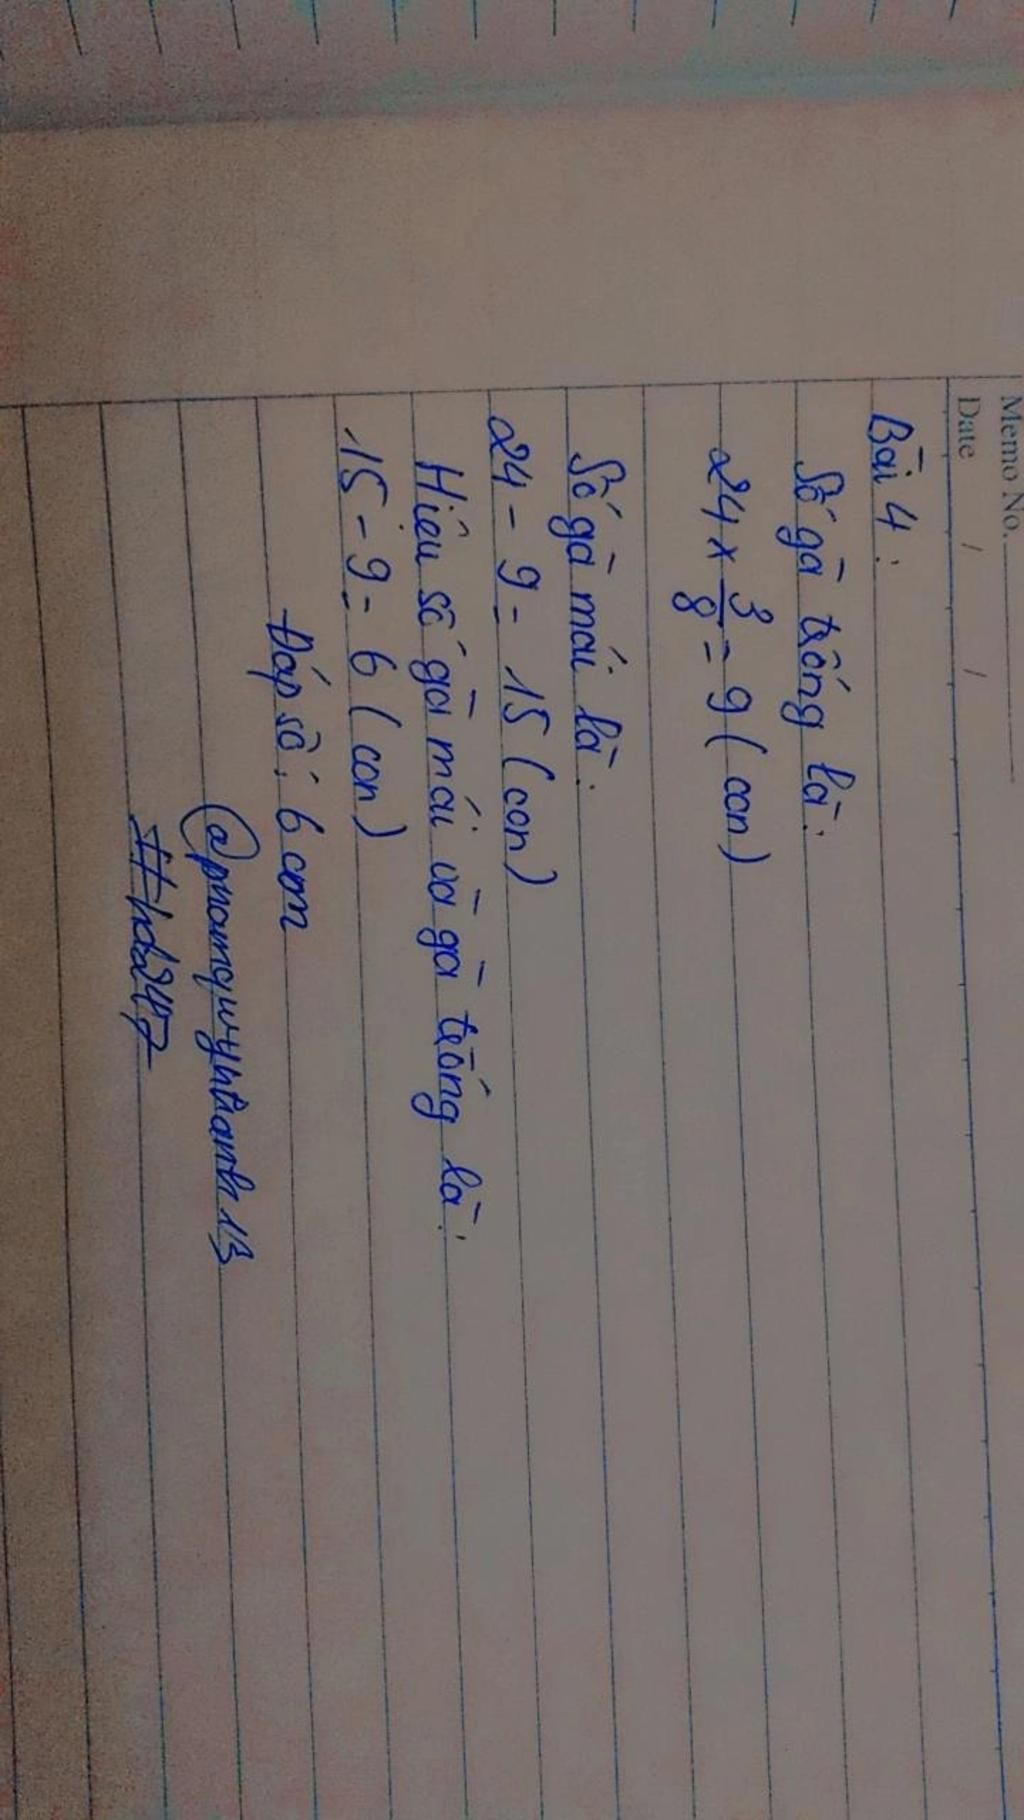 Memo No.
Date / /
Bài 4:
Số gà trống là:
24 × 3/8 = 9 (con)
Số gà mái là:
24 - 9 = 15 (con)
Hiệu số gà mái và gà trống là:
15 - 9 = 6 (con)
Đáp số: 6 con
@phamquynhanh113
#hdz247